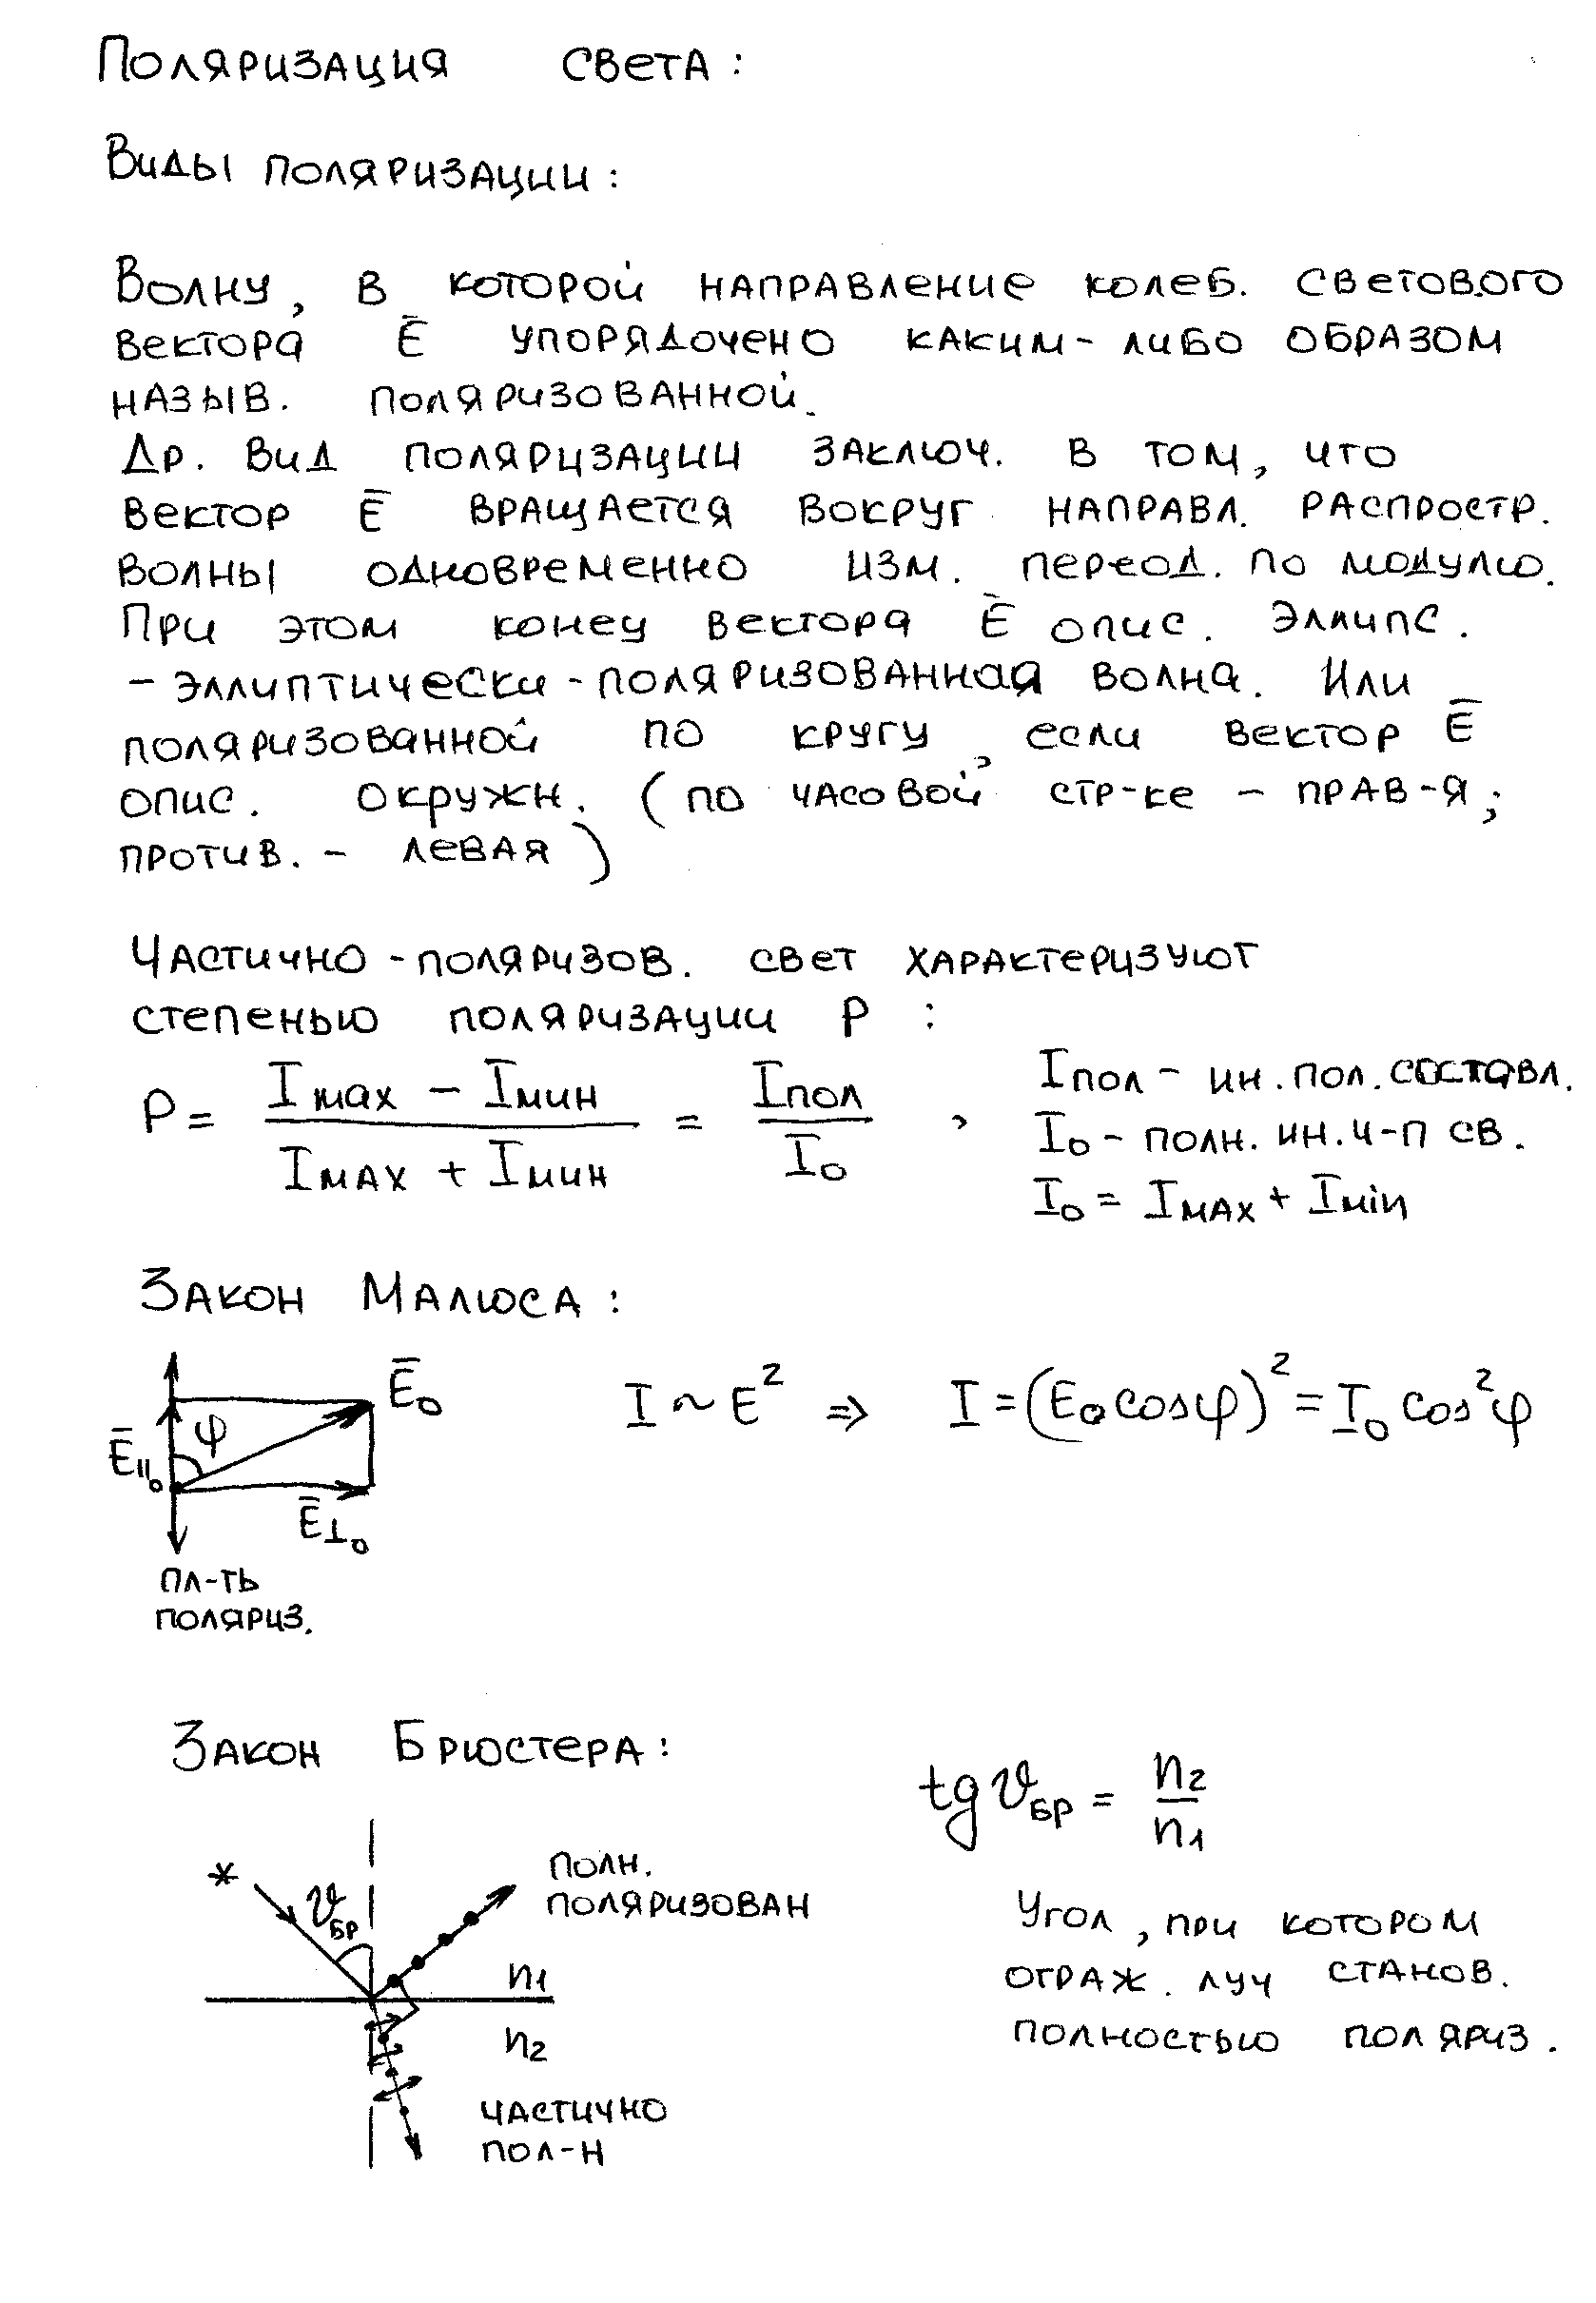 Поляризация света:
Виды поляризации:
Волну, в которой направление колеб. светового
вектора Ē упорядочено каким-либо образом
назыв. поляризованной.
Др. вид поляризации заключ. в том, что
вектор Ē вращается вокруг направл. распростр.
волны одновременно изм. период. по модулю.
При этом конец вектора Ē опис. эллипс.
- эллиптически-поляризованная волна. Или
поляризованной по кругу, если вектор Ē
опис. окружн. (по часовой стр-ке - прав-я;
против. - левая)
Частично-поляризов. свет характеризуют
степенью поляризации P :
P = (Iмах - Iмин) / (Iмах + Iмин) = Iпол / I₀ ,
Iпол - ин. пол. составл.
I₀ - полн. ин. ч-п св.
I₀ = Iмах + Imin
Закон Малюса:
Ē₀
φ
Ē||₀
Ē⊥₀
пл-ть
поляриз.
I ~ E² ⇒ I = (E₀cosφ)² = I₀ cos²φ
Закон Брюстера:
tg ϑбр = n₂ / n₁
* ϑбр
полн.
поляризован
n₁
n₂
частично
пол-н
Угол, при котором
отраж. луч станов.
полностью поляриз.